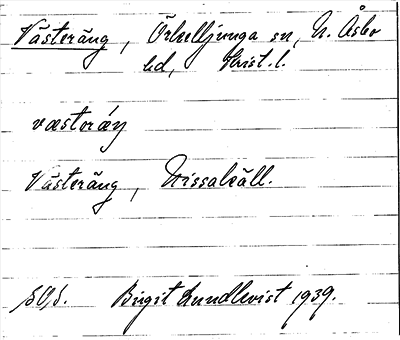 Västeräng, Örkelljunga sn, N. Åsbo
hd, Krist. l.
væstoráŋ
Västeräng, Nissakäll.
SOS. Birgit Lundkvist 1939.